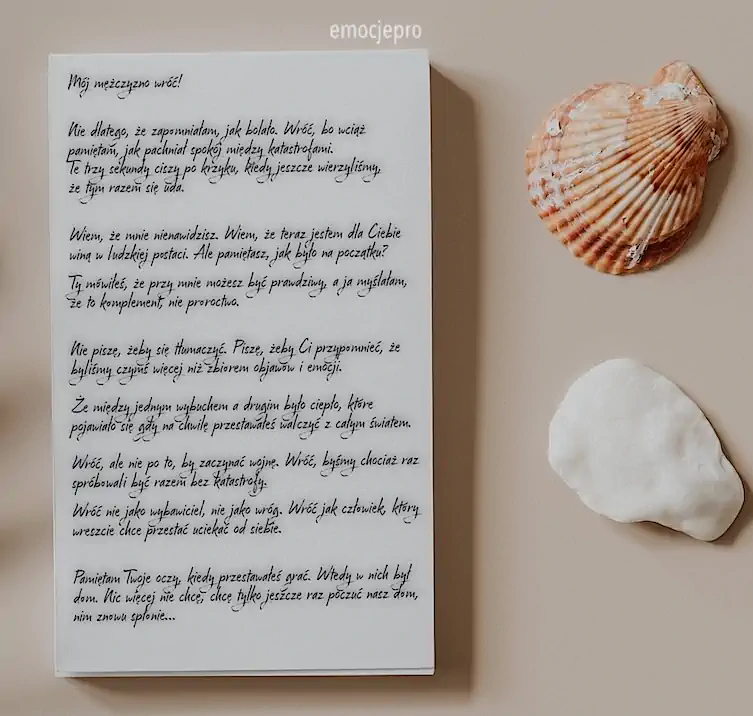 emocjepro
Mój mężczyzno wróć!
Nie dlatego, że zapomniałam, jak bolało. Wróć, bo wciąż
pamiętam, jak pachniał spokój między katastrofami.
Te trzy sekundy ciszy po krzyku, kiedy jeszcze wierzyliśmy,
że tym razem się uda.
Wiem, że mnie nienawidzisz. Wiem, że teraz jestem dla Ciebie
winą w ludzkiej postaci. Ale pamiętasz, jak było na początku?
Ty mówiłeś, że przy mnie możesz być prawdziwy, a ja myślałam,
że to komplement, nie proroctwo.
Nie piszę, żeby się tłumaczyć. Piszę, żeby Ci przypomnieć, że
byliśmy czymś więcej niż zbiorem objawów i emocji.
Że między jednym wybuchem a drugim było ciepło, które
pojawiało się gdy na chwilę przestawałeś walczyć z całym światem.
Wróć, ale nie po to, by zaczynać wojnę. Wróć, byśmy chociaż raz
spróbowali być razem bez katastrofy.
Wróć nie jako wybawiciel, nie jako wróg. Wróć jak człowiek, który
wreszcie chce przestać uciekać od siebie.
Pamiętam Twoje oczy, kiedy przestawałeś grać. Wtedy w nich był
dom. Nic więcej nie chcę, chcę tylko jeszcze raz poczuć nasz dom,
nim znowu spłonie...